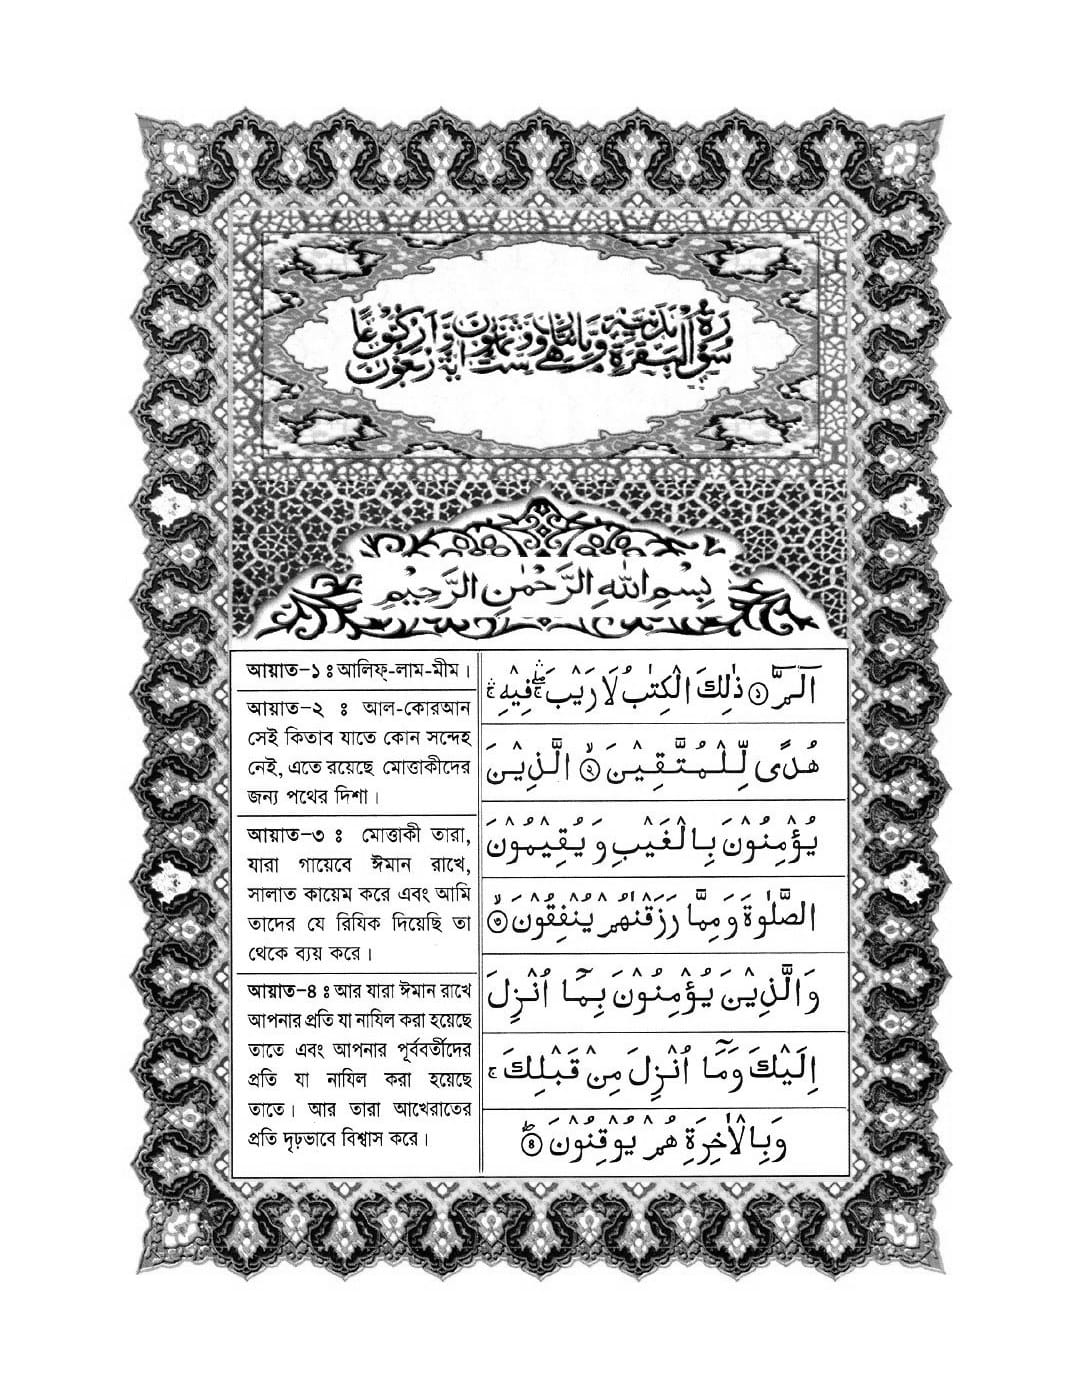 سُوْرَةُ الْبَقَرَةِ مَدَنِيَّةٌ
بِسْمِ اللّٰهِ الرَّحْمٰنِ الرَّحِيْمِ
الٓمّٓ ۝۱ ذٰلِكَ الْكِتٰبُ لَا رَيْبَ ۛۖۚ فِيْهِ ۛۚ
هُدًى لِّلْمُتَّقِيْنَ ۝۲ۙ الَّذِيْنَ
يُؤْمِنُوْنَ بِالْغَيْبِ وَيُقِيْمُوْنَ
الصَّلٰوةَ وَمِمَّا رَزَقْنٰهُمْ يُنْفِقُوْنَ ۝۳ۙ
وَالَّذِيْنَ يُؤْمِنُوْنَ بِمَآ اُنْزِلَ
اِلَيْكَ وَمَآ اُنْزِلَ مِنْ قَبْلِكَ ۚ
وَبِالْاٰخِرَةِ هُمْ يُوْقِنُوْنَ ۝۴ؕ
আয়াত–১ ঃ আলিফ্-লাম-মীম।
আয়াত–২ ঃ আল-কোরআন
সেই কিতাব যাতে কোন সন্দেহ
নেই, এতে রয়েছে মোত্তাকীদের
জন্য পথের দিশা।
আয়াত–৩ ঃ মোত্তাকী তারা,
যারা গায়েবে ঈমান রাখে,
সালাত কায়েম করে এবং আমি
তাদের যে রিযিক দিয়েছি তা
থেকে ব্যয় করে।
আয়াত–৪ ঃ আর যারা ঈমান রাখে
আপনার প্রতি যা নাযিল করা হয়েছে
তাতে এবং আপনার পূর্ববর্তীদের
প্রতি যা নাযিল করা হয়েছে
তাতে। আর তারা আখেরাতের
প্রতি দৃঢ়ভাবে বিশ্বাস করে।